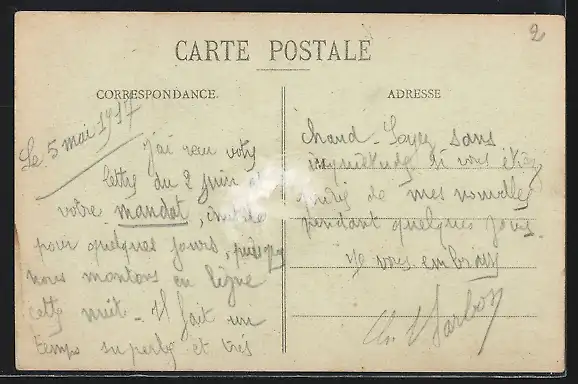 2
CARTE POSTALE
CORRESPONDANCE.
ADRESSE
Le 5 mai 1917
J'ai recu votre
lettre du 2 juin et
votre mandat,
pour quelques jours, puisque
nous montons en ligne
cette nuit - Il fait un
temps superbe et très
chaud - Soyez sans
inquiétude si vous étiez
privé de mes nouvelles
pendant quelques jours.
Je vous embrasse